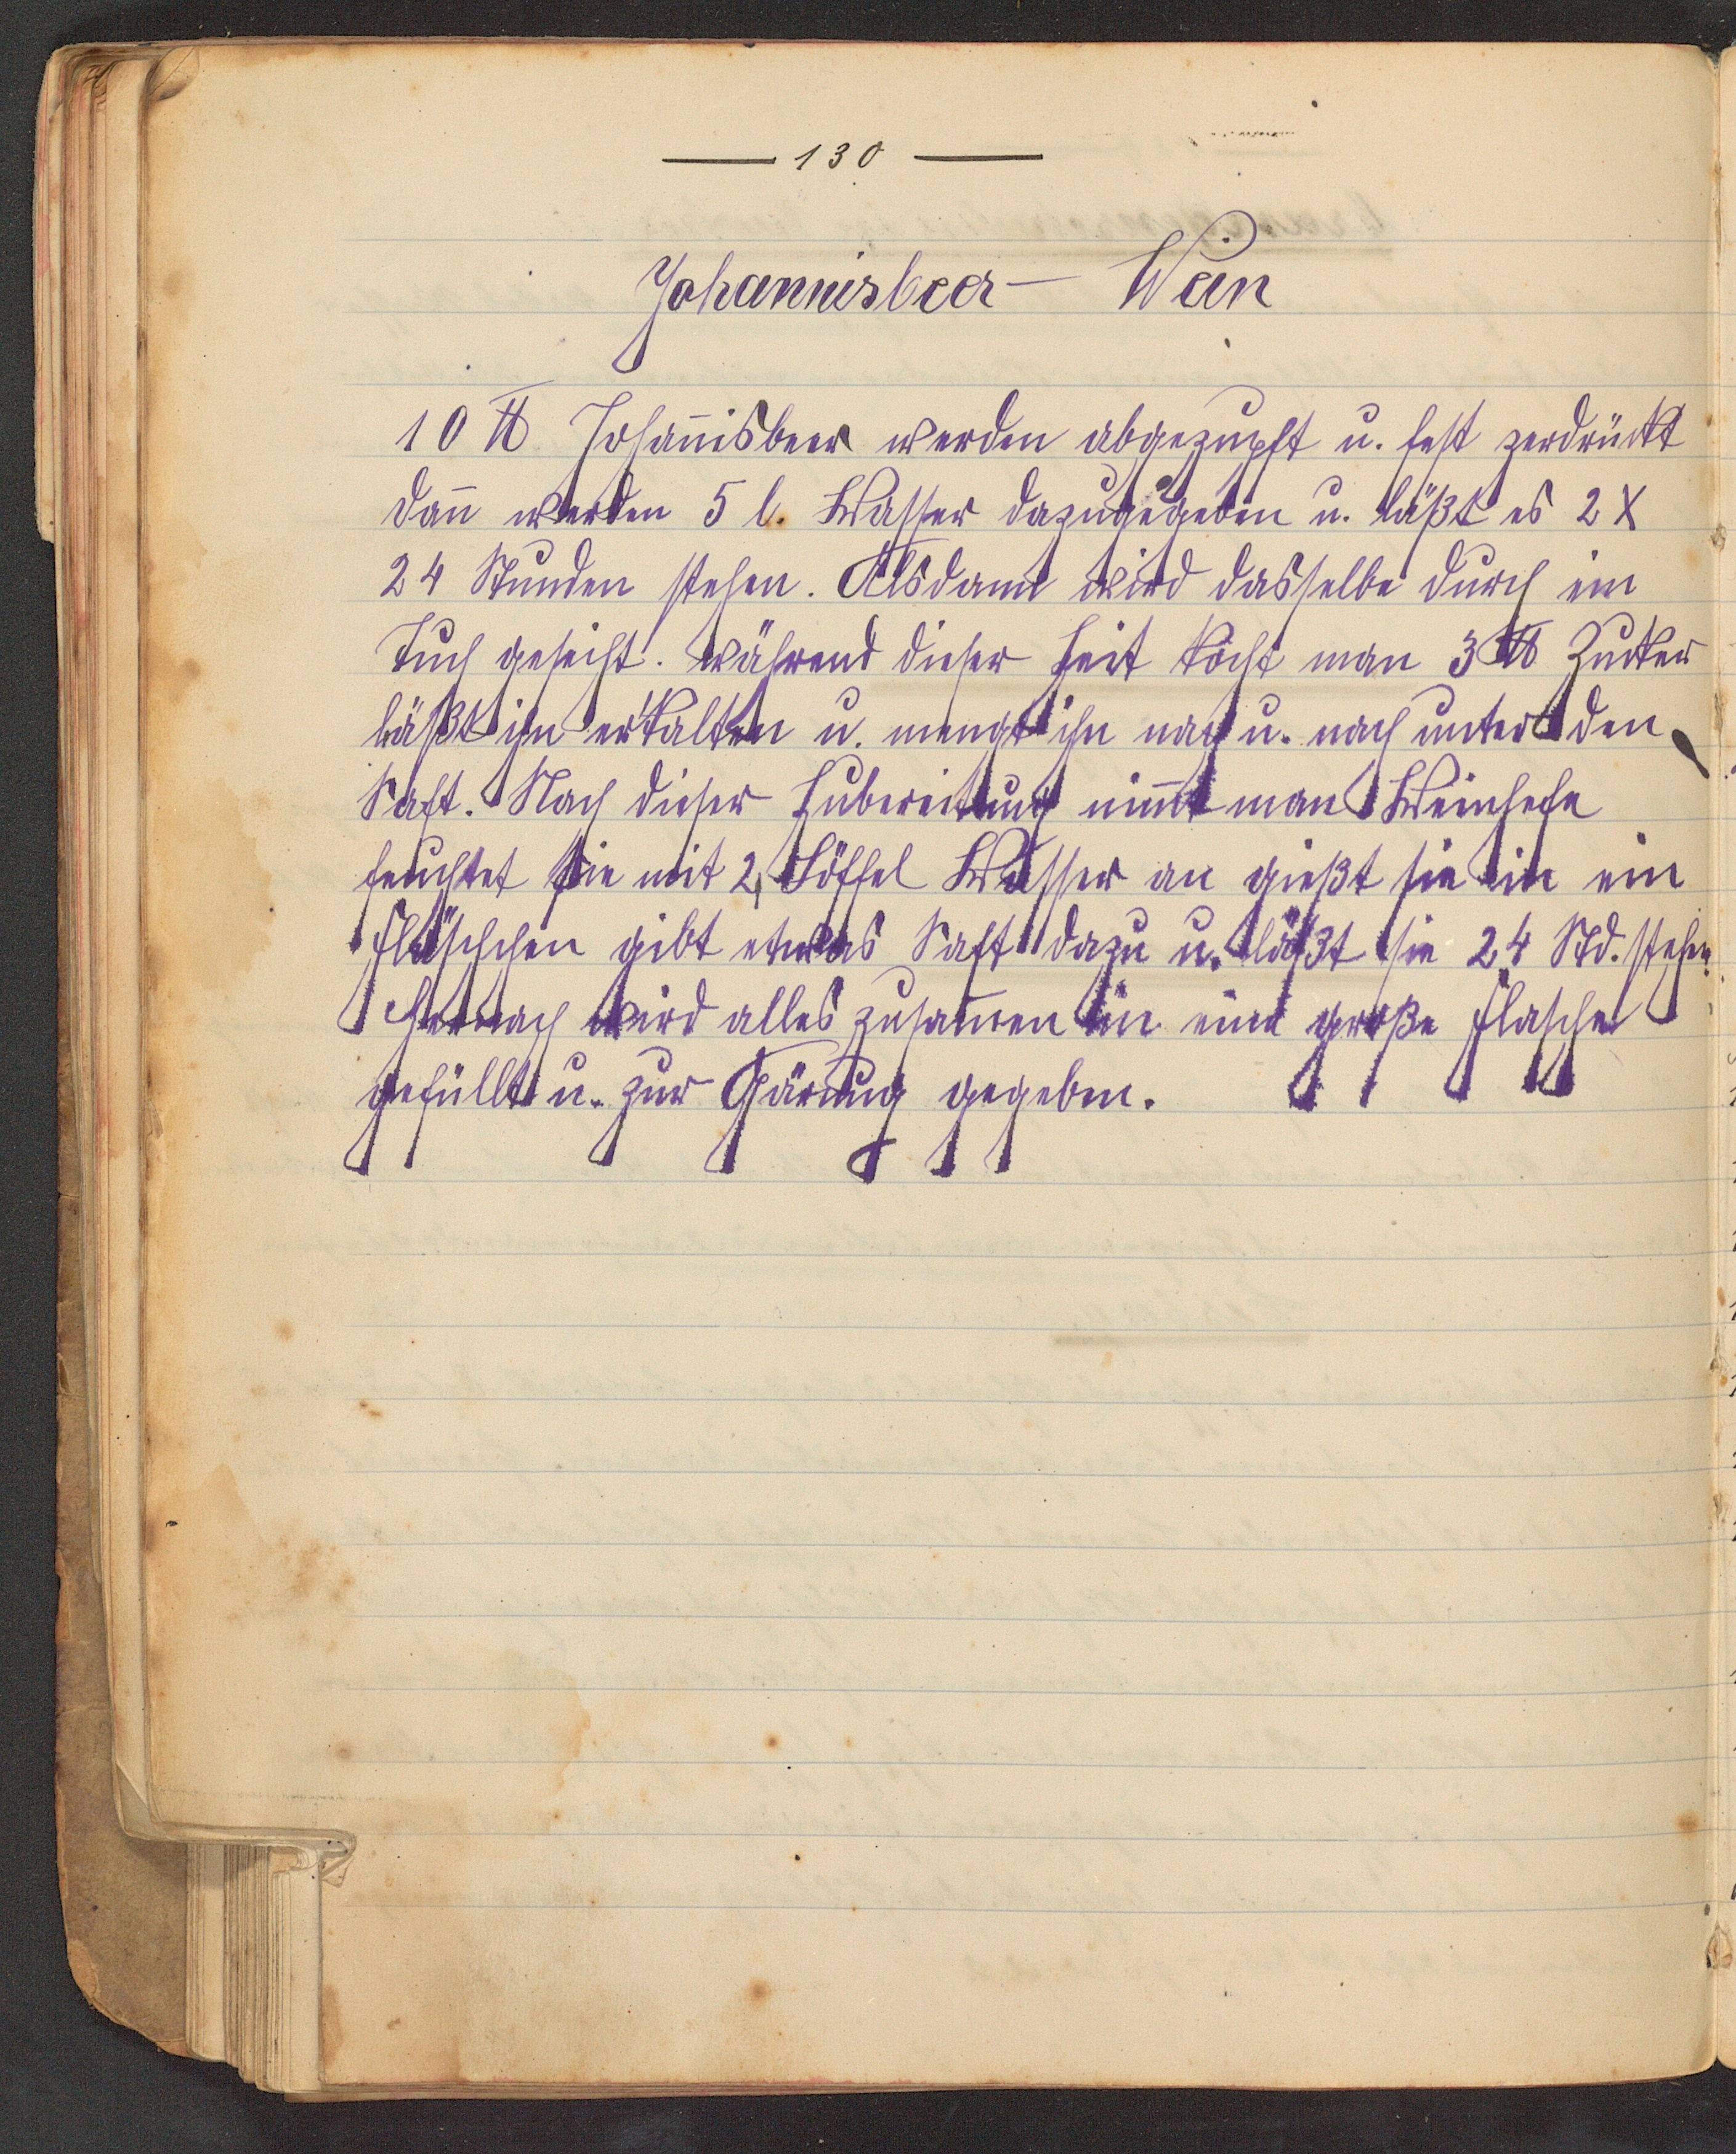 — 130 —
Johannisbeer - Wein
10 ℔ Johan̅isbeer werden abgezupft u. fest zerdrückt
dan̅ werden 5 l. Wasser dazugegeben u. läßt es 2 X
24 Stunden stehen. Alsdann wird dasselbe durch ein
Tuch geseiht. während dieser Zeit kocht man 3 ℔ Zucker
läßt ihn erkalten u. mengt ihn nach u. nach unter den
Saft. Nach dieser Zubereitung nim̅t man Weinhefe
feuchtet sie mit 2 Löffel Wasser an gießt sie in ein
Fläschchen gibt etwas Saft dazu u. läßt sie 24 Std. stehen
hernach wird alles zusam̅en in eine große Flasche
gefüllt u. zur Gärung gegeben.